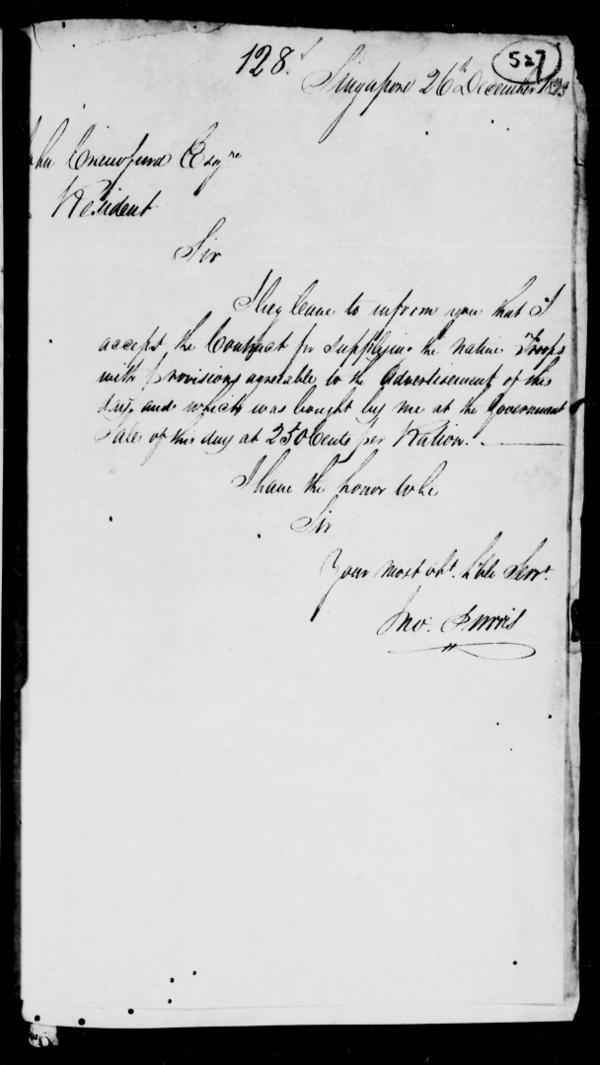 128.
527
Singapore 26th December 1823
John Crawfurd Esqre
Resident
Sir
I beg leave to inform you that I
accept the Contract for supplying the native Troops
with provisions agreable to the advertisement of this
day, and which was bought by me at the Government
Sale of this day at 250 Cents per Ration.
I have the honor to be
Sir
Your most obt. hble Servt.
Jno.